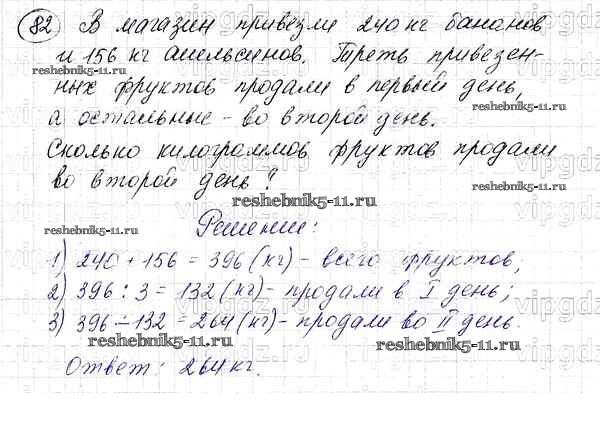 82 В магазин привезли 240 кг бананов
и 156 кг апельсинов. Треть привезен-
reshebnik5-11.ru
ных фруктов продали в первый день,
reshebnik5-11.ru
а остальные - во второй день.
Сколько килограммов фруктов продали
reshebnik5-11.ru
во второй день?
reshebnik5-11.ru
Решение:
1) 240 + 156 = 396 (кг) - всего фруктов;
2) 396 : 3 = 132 (кг) - продали в I день;
3) 396 - 132 = 264 (кг) - продали во II день.
reshebnik5-11.ru
reshebnik5-11.ru
Ответ: 264 кг.